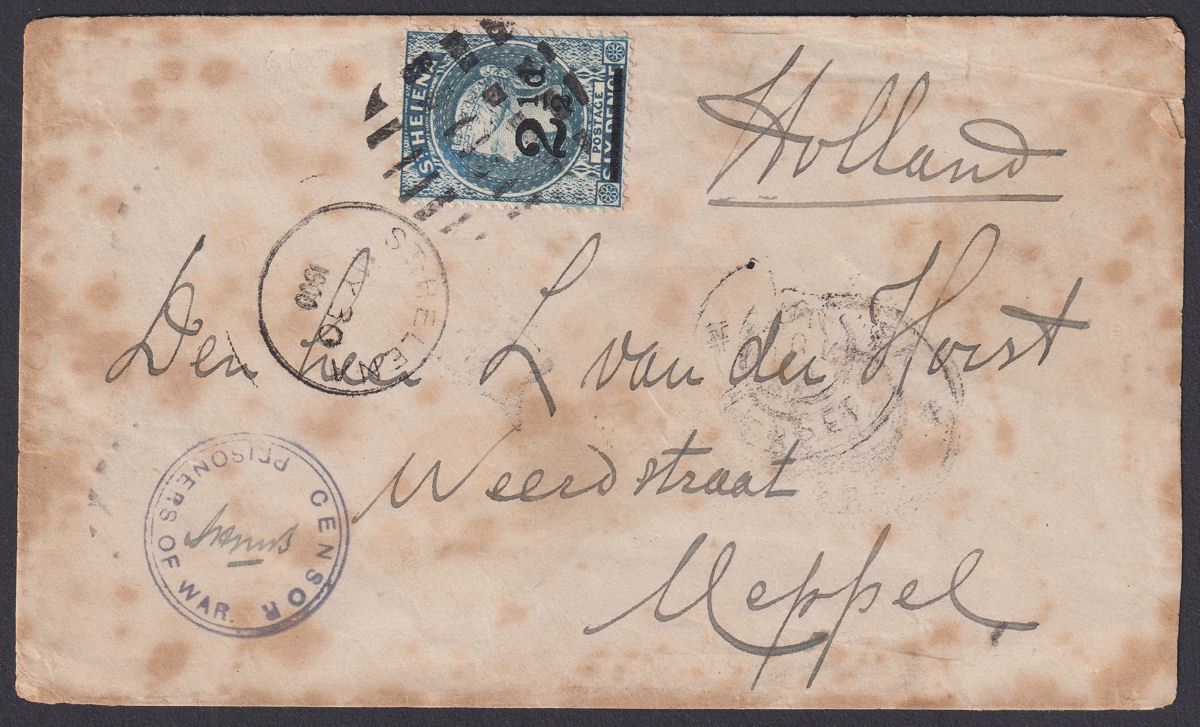 ST HELENA
POSTAGE
SIX PENCE
2½d
Holland
ST. HELENA
JY 30
1900
Den heer L van der Horst
Weerdstraat
Meppel
CENSOR
PRISONERS OF WAR.